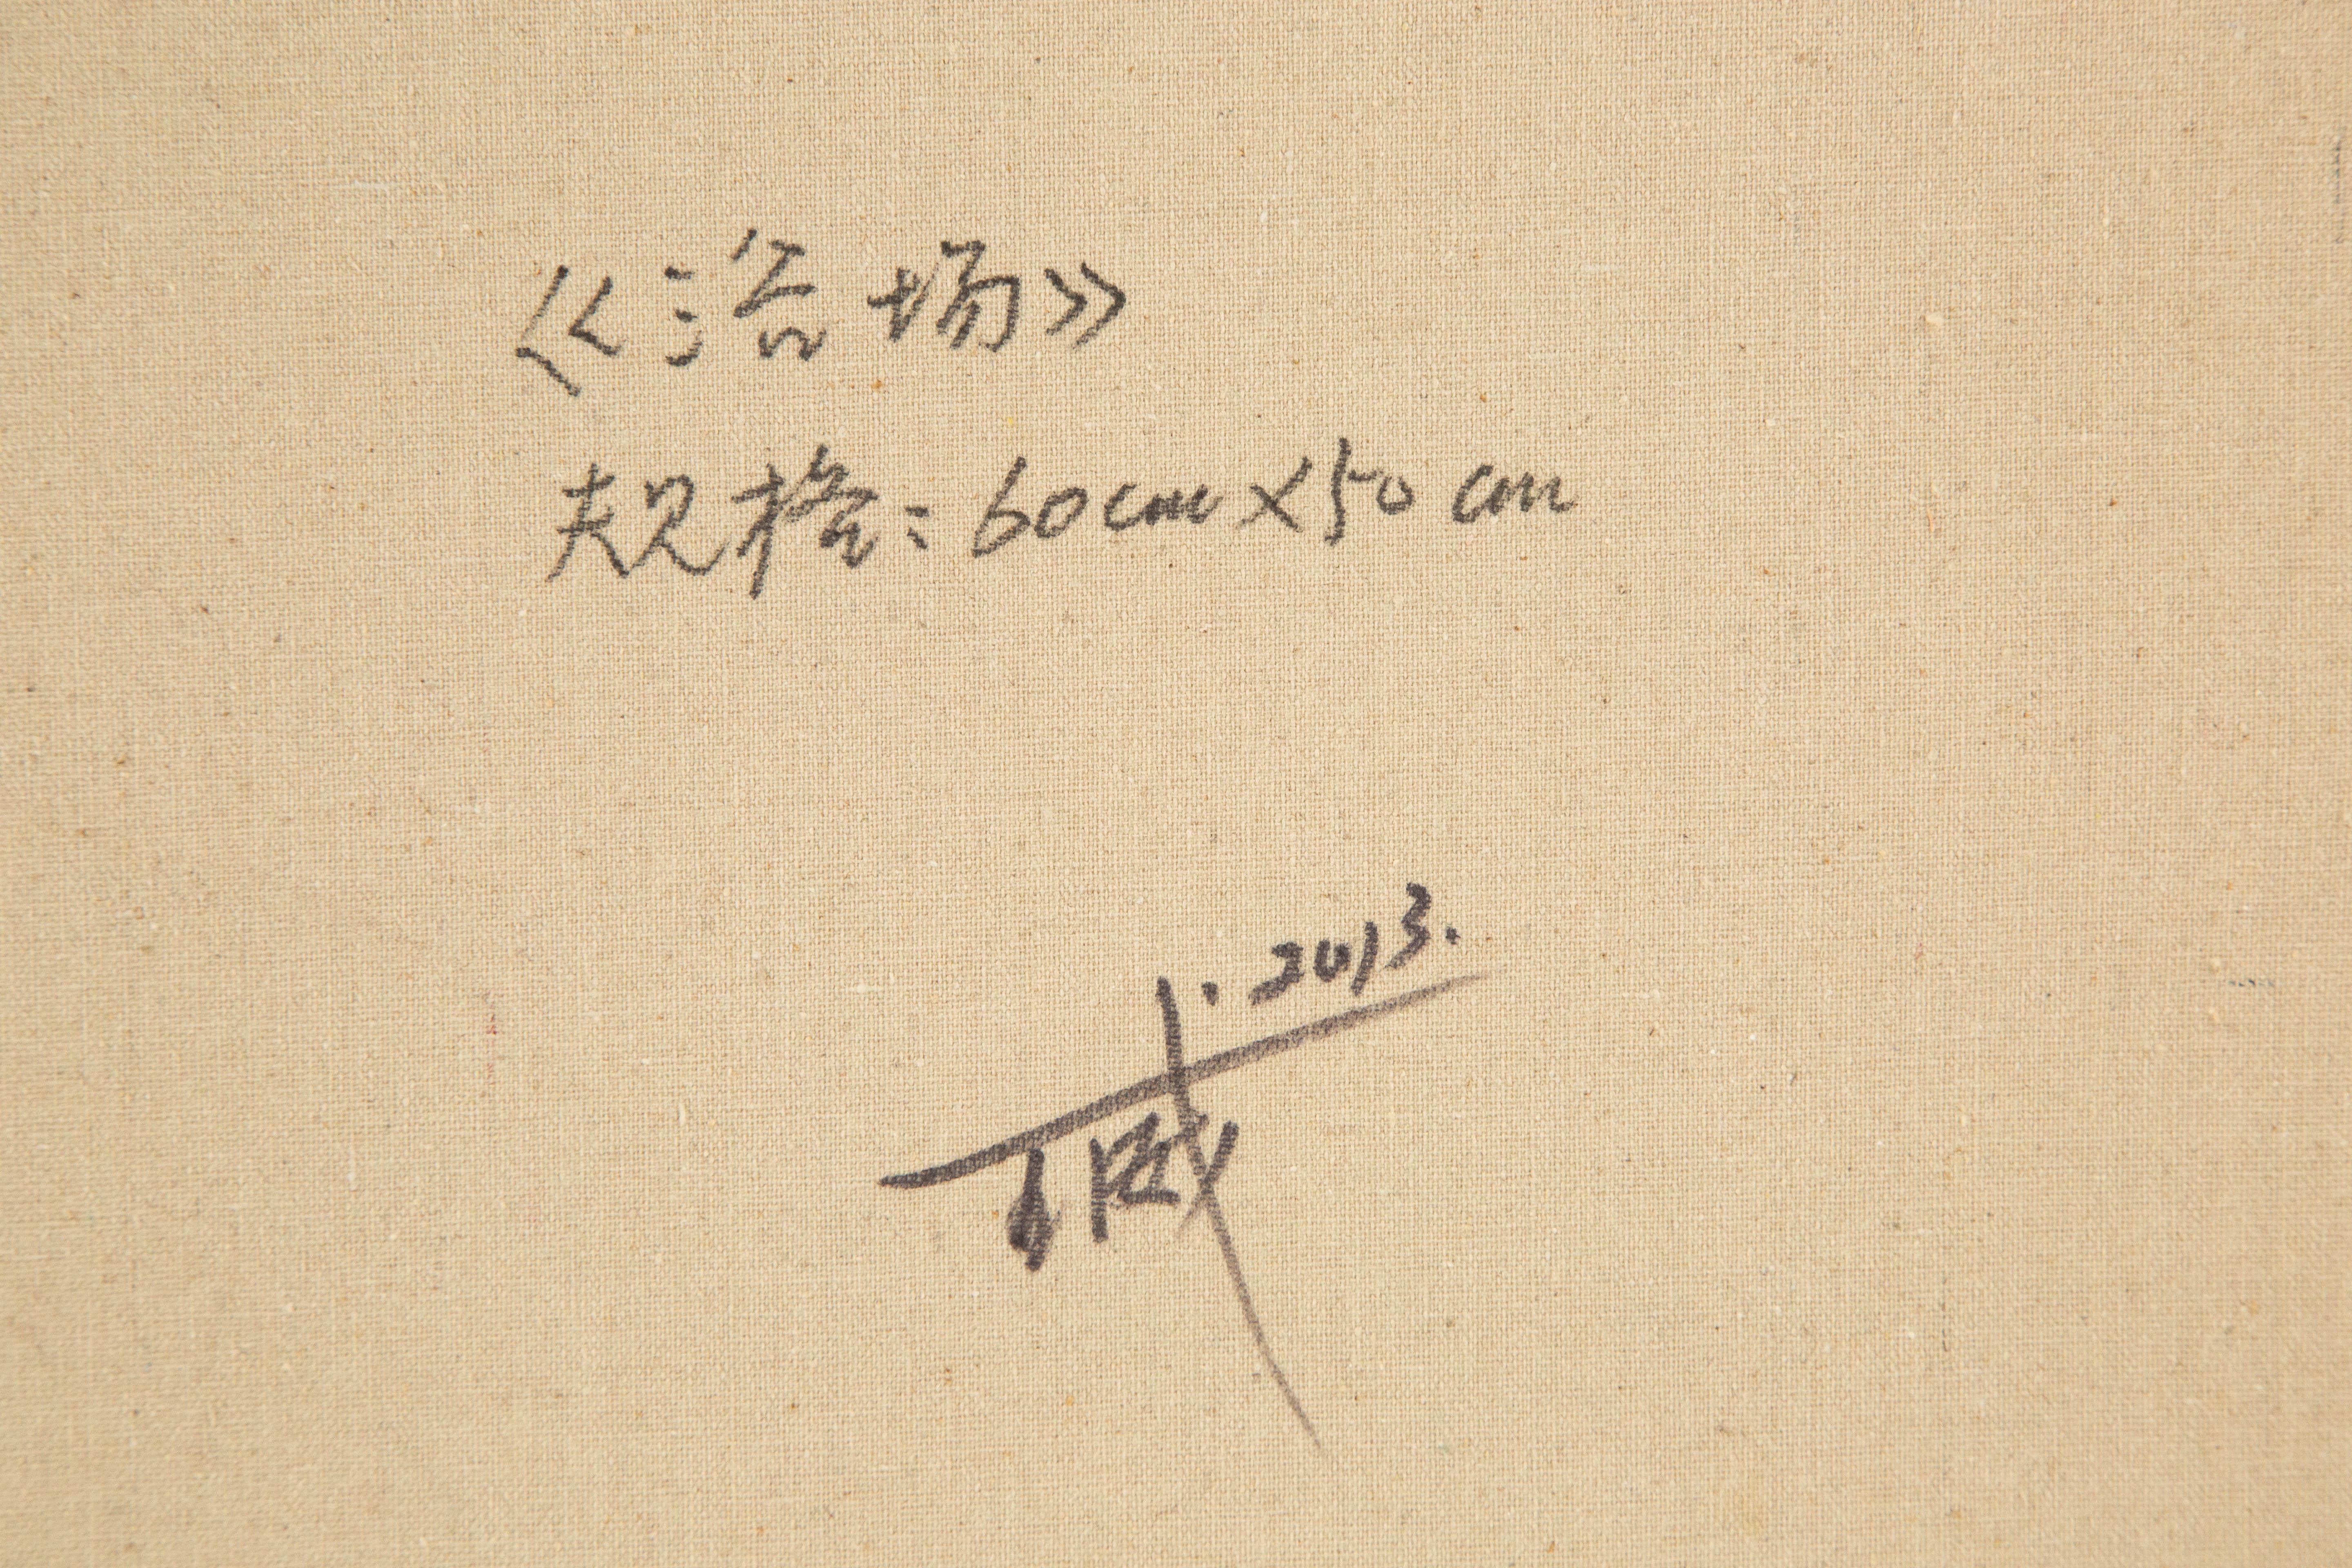 《浴场》
规格:60cm×50cm
.2013.